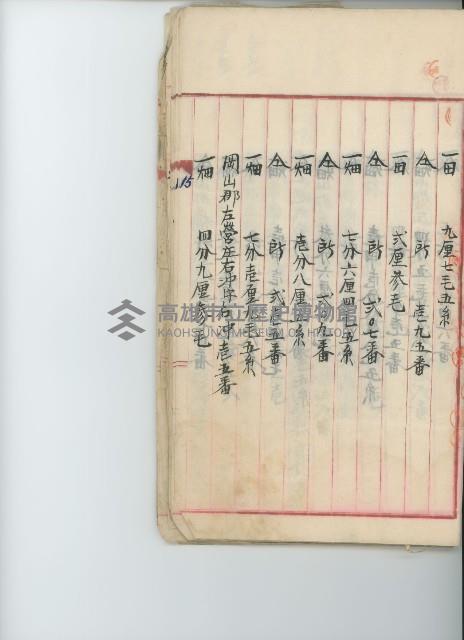 一田 九厘七毛五糸
仝 所 壱九五番
一田 弐厘参毛
仝 所 弐〇七番
一畑 七分六厘四毛五糸
仝 所 弐 九番
一畑 壱分八厘 糸
仝 所 弐 五番
一畑 七分壱厘 毛五糸
岡山郡左營庄右冲字右冲壱五番
一畑 四分九厘参毛
115
高雄市立歷史博物館
KAOHSIUNG MUSEUM OF HISTORY